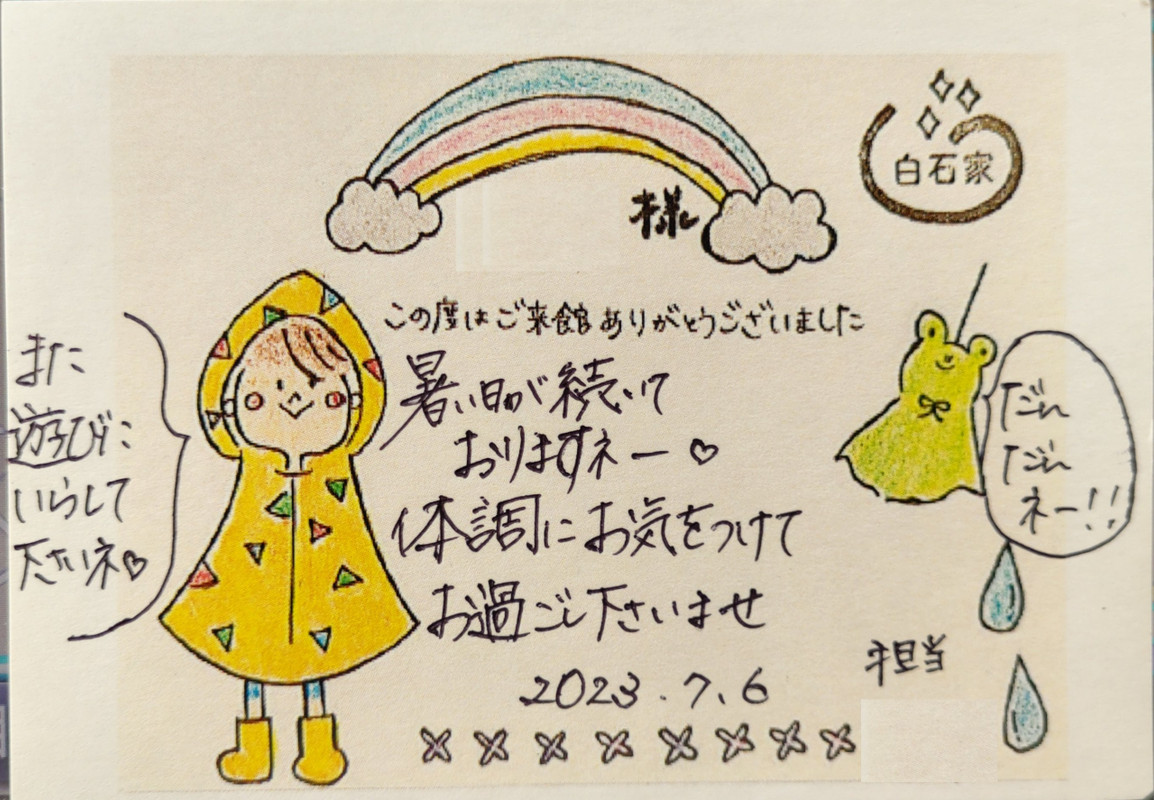 白石家
様
この度はご来館ありがとうございました
暑い日が続いて
おりますネー♡
体調にお気をつけて
お過ごし下さいませ
2023.7.6
また
遊びに
いらして
下さいネ♡
だれ
だれ
ネー!!
担当